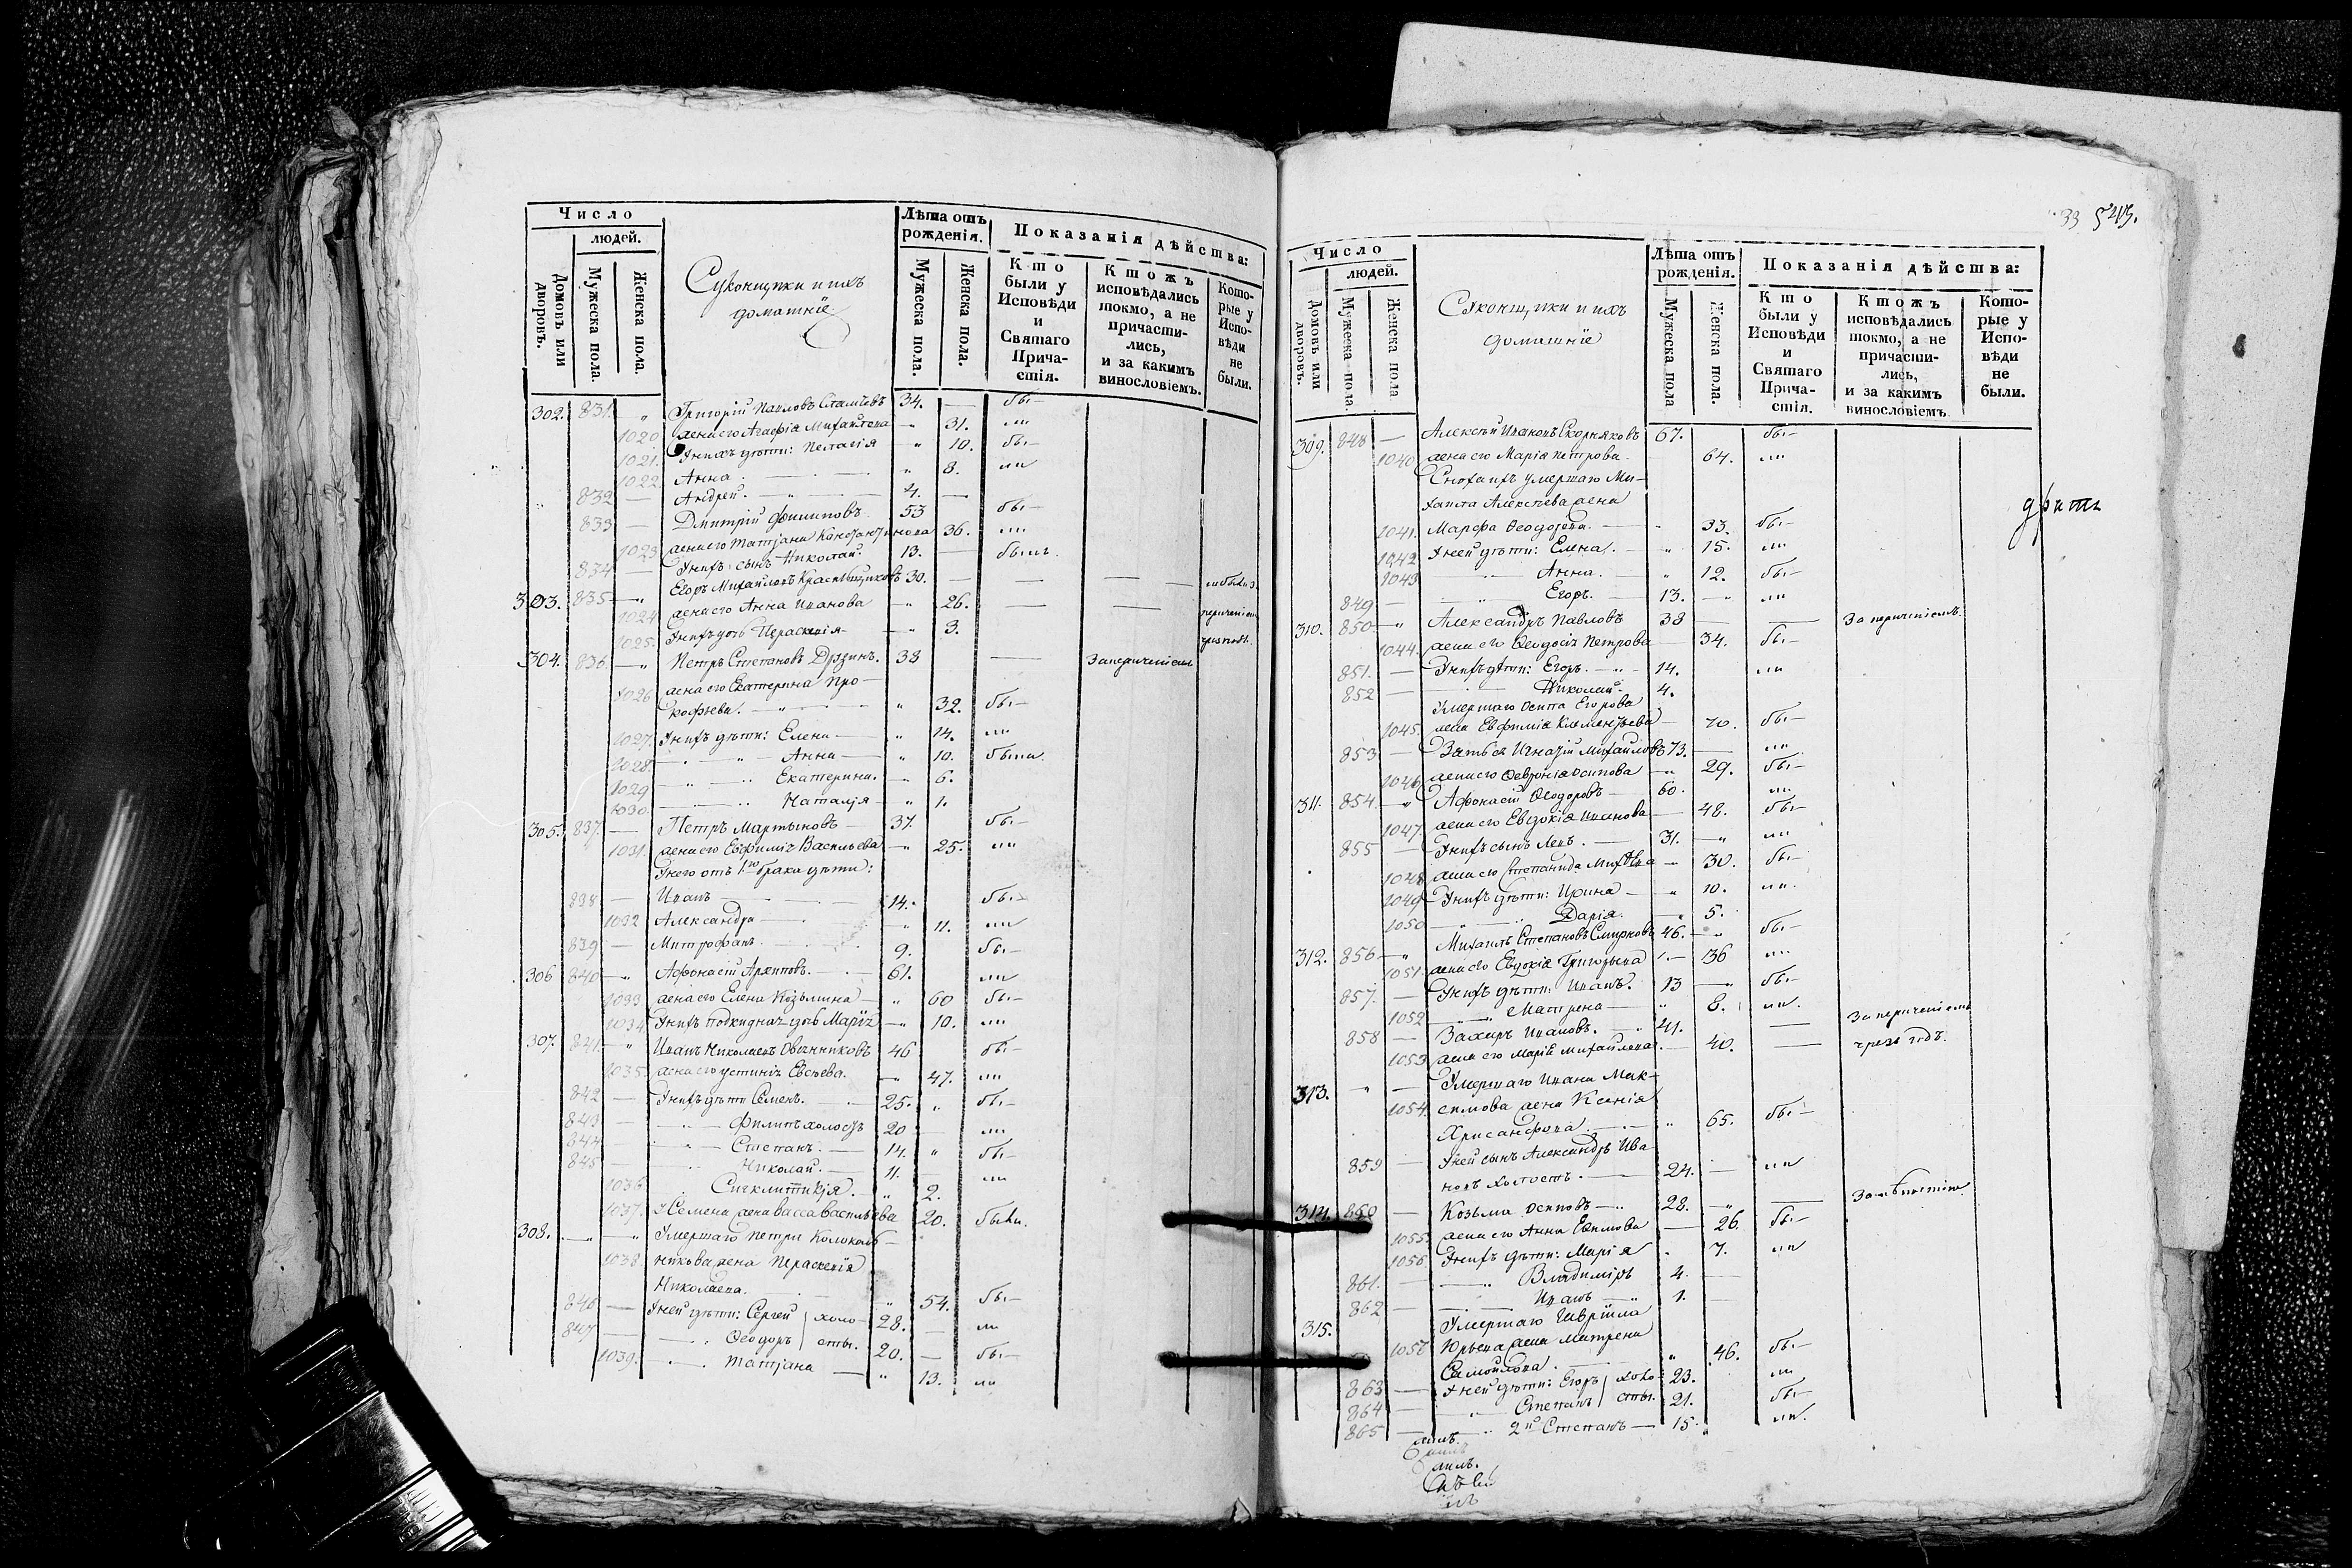 Число
людей.
Домовъ или дворовъ.
Мужеска пола.
Женска пола.
Суконщики и ихъ
домашніе
Лѣта отъ рожденія.
Мужеска пола.
Женска пола.
Показанія дѣйства:
Кто были у Исповѣди и Святаго Причастія.
Ктожъ исповѣдались токмо, а не причастились, и за какимъ винословіемъ.
Которые у Исповѣди не были.
302. 831. — " Григорій Павловъ 34. — бы—
1020 жена его Агафія Михайлова " 31. ли
1021. У нихъ дѣти: Пелагія " 10. бы—
1022 Анна " 8. ли
832 — Андрей. — " — 4. —
833 — Дмитрій Филиповъ 53 бы—
1023 жена его Татіана Константинова 36. ли
834 — У нихъ сынъ Николай. 13. — былъ.
303. 835 — " Егоръ Михайловъ 30. — — —
1024 жена его Анна Иванова — " 26. — —
1025. У нихъ дочь Параскевія — " 3.
304. 836 — " Петръ Степановъ 38 — За
1026 жена его Екатерина Про—
кофьева. — " 32. бы—
1027. У нихъ дѣти: Елена — " 14. ли
1028. — " — Анна — " 10. была.
1029 — " — Екатерина. — " 6.
1030. — " Наталія — " 1.
305. 837. — Петръ Мартыновъ — 37. бы—
1031. жена его Евфимія Васильева — " 25. ли
У него отъ 1го брака дѣти:
838 — Иванъ — 14. бы—
1032 Александра — " 11. ли
839 — Митрофанъ. 9. бы—
306 840 — " Афонасій Архиповъ. — 61. ли
1033 жена его Елена Козьмина — " 60 бы—
1034 У нихъ подкидная дочь Марія — " 10. ли
307. 841. — " Иванъ Николаевъ Овчинниковъ 46 бы—
1035. жена его Устинія Евсѣева. — " 47. ли
842 — У нихъ дѣти Семенъ. 25. " бы—
843 — " — Филипъ холостъ 20 — ли
844 — " — Степанъ. — 14. " бы—
845 — " Николай. — 11. — ли
1036 Сигклитикія. — " 2.
1037. У Семена жена Васса Васильева 20. была.
308. — " — " Умершаго Петра Колоколь—
1038. никова жена Параскевія
Николаева. " 54. бы—
846 — У ней дѣти: Сергей } холо— 28. — ли
847 — — " Ѳеодоръ } сты. 20. — бы—
1039. — " Татіана — " 13. ли
33
Число
людей.
Домовъ или дворовъ.
Мужеска пола.
Женска пола
Суконщики и ихъ
домашніе
Лѣта отъ рожденія.
Мужеска пола
Женска пола.
Показанія дѣйства:
Кто были у Исповѣди и Святаго Причастія.
Ктожъ исповѣдались токмо, а не причастились, и за какимъ винословіемъ.
Которые у Исповѣди не были.
309. 848 — Алексѣй Ивановъ Скорняковъ 67. бы—
1040 жена его Марія Петрова — 64. ли
Сноха ихъ умершаго Ми—
хаила Алексѣева жена
1041. Марфа Ѳеодорова. — " 33. бы—
1042 У ней дѣти: Елена. — " 15. ли
1043 " Анна. — " 12. бы—
849 — " Егоръ. — 13. — " ли
310. 850 — " Александръ Павловъ 38 — —
1044. жена его Ѳеодосія Петрова — 34. бы—
851. — У нихъ дѣти: Егоръ. — 14. ли
852 — Николай. 4.
Умершаго Осипа Егорова
1045. жена Евфимія Климентьева — 70. бы—
853 — Зять ея Игнатій Михайловъ 73. — ли
1046 жена его Ѳевронія Осипова — " 29. бы—
311. 854. — " Афонасій Ѳеодоровъ — 60. ли
1047. жена его Евдокія Иванова — 48. бы—
855 — У нихъ сынъ Левъ. — 31. — " ли
1048 жена его Степанида — " 30. бы—
1049 У нихъ дѣти: Ирина — " 10. ли.
1050 — " Дарія. — " 5.
312. 856 — " Михаилъ Степановъ Смирновъ 46. — " бы—
1051. жена его Евдокія Григорьева " — 36 ли
857. — У нихъ дѣти: Иванъ. 13 — " бы—
1052 — " Матрена — " 8. ли.
858 — Захаръ Ивановъ. — " 41. —
1053 жена его Марія Михайлова. — 40. — чрезъ годъ.
313. " — Умершаго Ивана Мак—
1054. симова жена Ксенія
Хрисанфова. — " 65. бы—
859 — У ней сынъ Александръ Ива
новъ холостъ. — 24. — ли
314. 860 — Козьма Осиповъ — " 28. — " —
1055. жена его Анна Ефимова — 26. бы—
1056. У нихъ дѣти: Марія " 7. ли
861. — — " Владиміръ 4. —
862 — — Иванъ — " 1. —
315. Умершаго Гавріила
Юрьева жена Матрена
Самойлова. — " 46. бы—
863 — У ней дѣти: Егоръ } холо: 23. ли
864 — " — Степанъ } сты. 21. бы—
865 — " 2й Степанъ — 15. " ли.